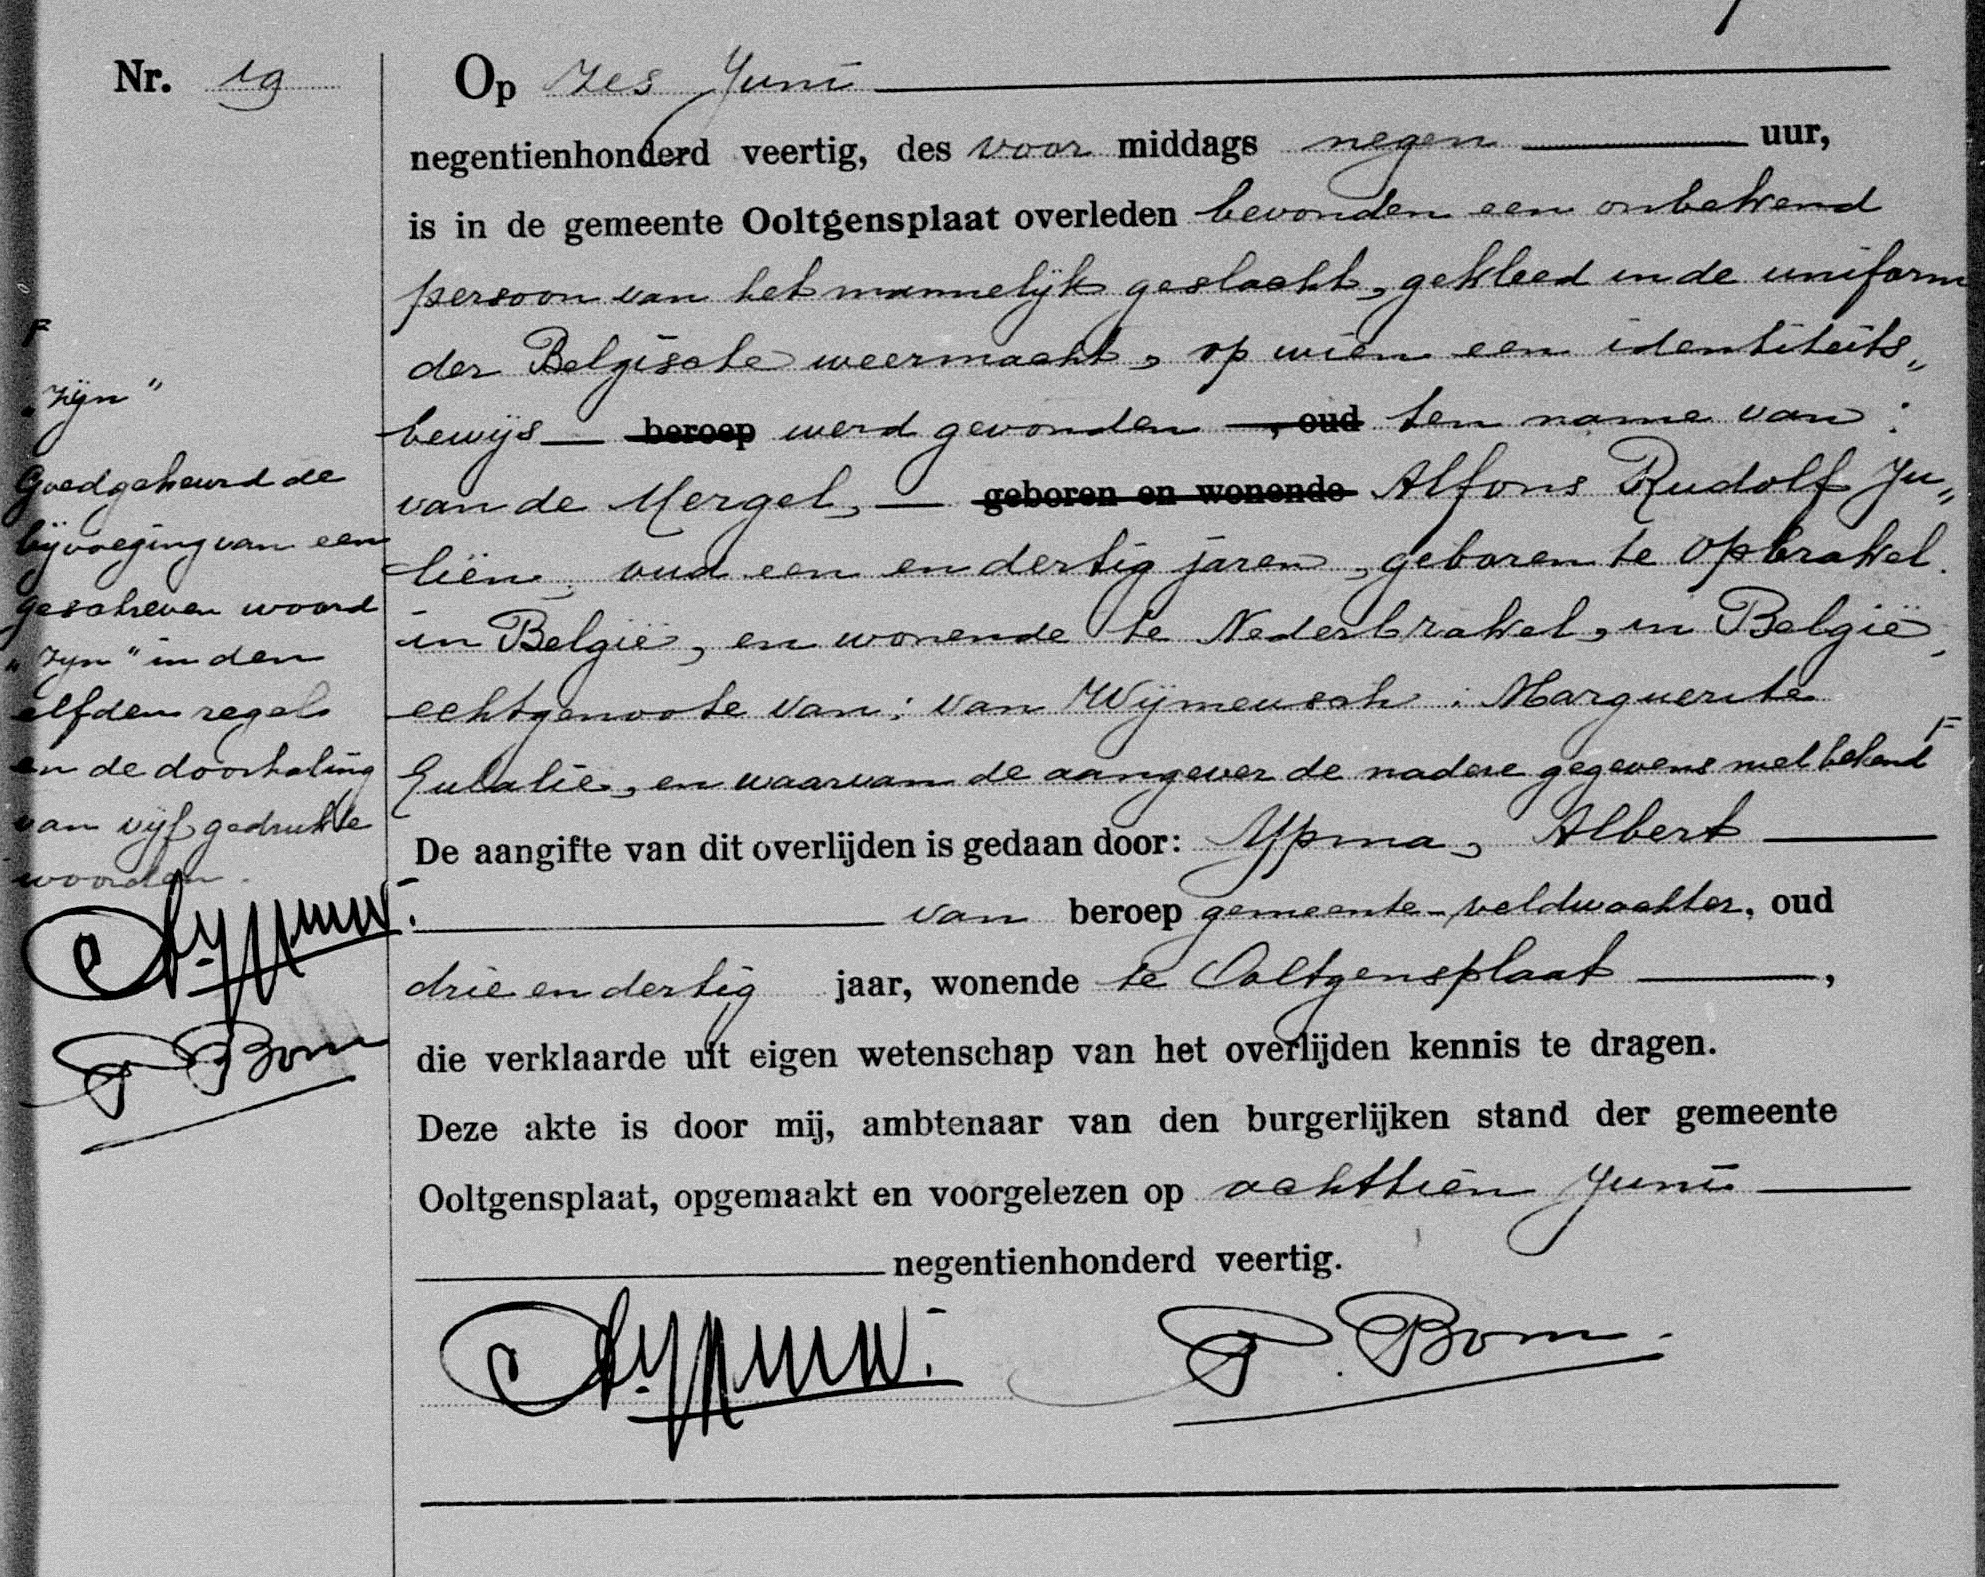 Nr. 19
Op zes Juni
negentienhonderd veertig, des voor middags negen uur,
is in de gemeente Ooltgensplaat overleden bevonden een onbekend
persoon van het mannelijk geslacht, gekleed in de uniform
der Belgische weermacht, op wien een identiteits„
bewijs beroep werd gevonden , oud ten name van :
van de Mergel, geboren en wonende Alfons Rudolf Ju„
liën, oud een en dertig jaren, geboren te Opbrakel.
in België, en wonende te Nederbrakel, in België,
echtgenoote van: van Wijmeusch : Marguerite
Eulalie, en waarvan de aangever de nadere gegevens niet bekend F
De aangifte van dit overlijden is gedaan door: Ypma, Albert
van beroep gemeente-veldwachter, oud
drie en dertig jaar, wonende te Ooltgensplaat ,
die verklaarde uit eigen wetenschap van het overlijden kennis te dragen.
Deze akte is door mij, ambtenaar van den burgerlijken stand der gemeente
Ooltgensplaat, opgemaakt en voorgelezen op achttien Juni
negentienhonderd veertig.
P. Bom.
F
„zijn”
Goedgekeurd de
bijvoeging van een
geschreven woord
„zijn” in den
elfden regel
en de doorhaling
van vijf gedrukte
woorden.
P Bom